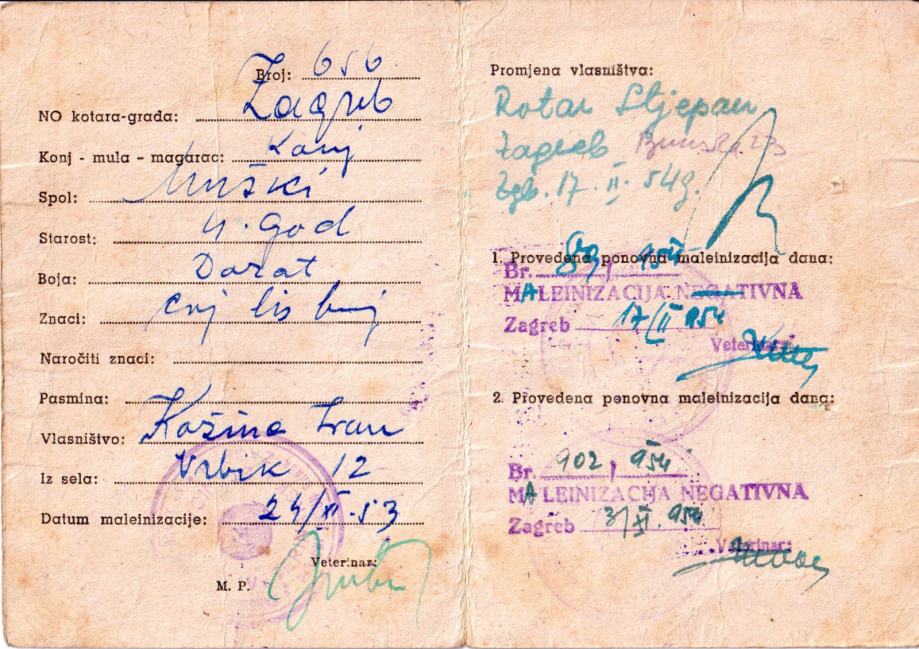 Broj: 656
NO kotara-grada: Zagreb
Konj - mula - magarac: Konj
Spol: Muški
Starost: 4. god
Boja: Dorat
Znaci: cvj lis
Naročiti znaci:
Pasmina:
Vlasništvo: Kožina Ivan
Iz sela: Vrbik 12
Datum maleinizacije: 24/XI-53
Veterinar:
M. P.
Promjena vlasništva:
Rotar Stjepan
Zagreb
Zgb. 17. II. 54 g.
1. Provedena ponovna maleinizacija dana:
Br. 89, 954
MALEINIZACIJA NEGATIVNA
Zagreb 17/II 954
Veterinar:
2. Provedena ponovna maleinizacija dana:
Br. 902, 954
MALEINIZACIJA NEGATIVNA
Zagreb 3/XI. 954
Veterinar: